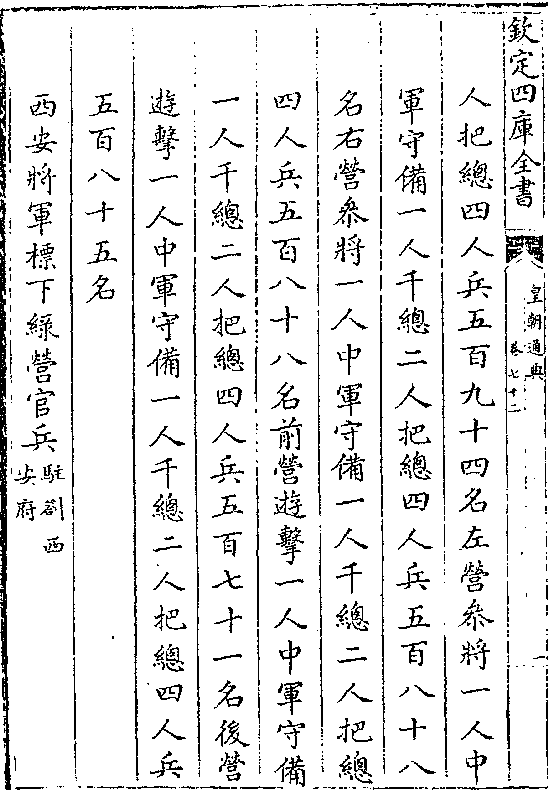 欽定四庫全書
皇朝通典
卷七十二
人把總四人兵五百九十四名左營叅將一人中
軍守備一人千總二人把總四人兵五百八十八
名右營叅將一人中軍守備一人千總二人把總
四人兵五百八十八名前營遊擊一人中軍守備
一人千總二人把總四人兵五百七十一名後營
遊擊一人中軍守備一人千總二人把總四人兵
五百八十五名
西安將軍標下綠營官兵
駐劄西
安府